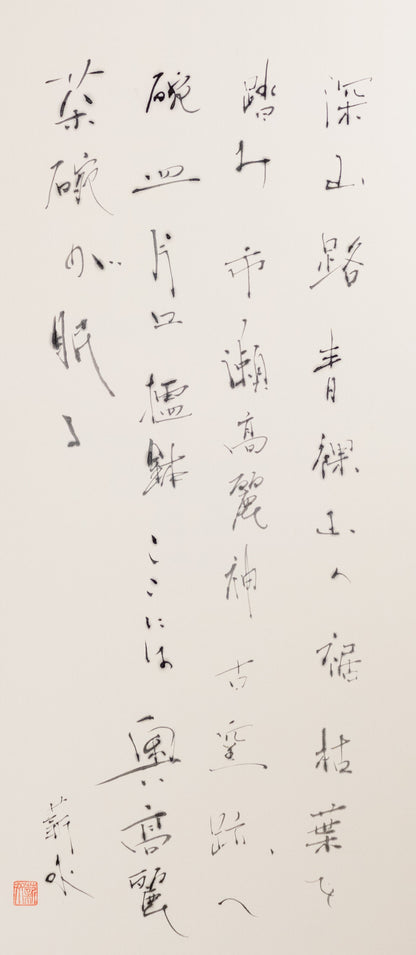 深山路 青裸山へ 裾枯葉を
踏み 市ノ瀬高麗神 古窯跡へ
碗 皿 片口 擂鉢 ここには 奥高麗
茶碗が眠る
薪水